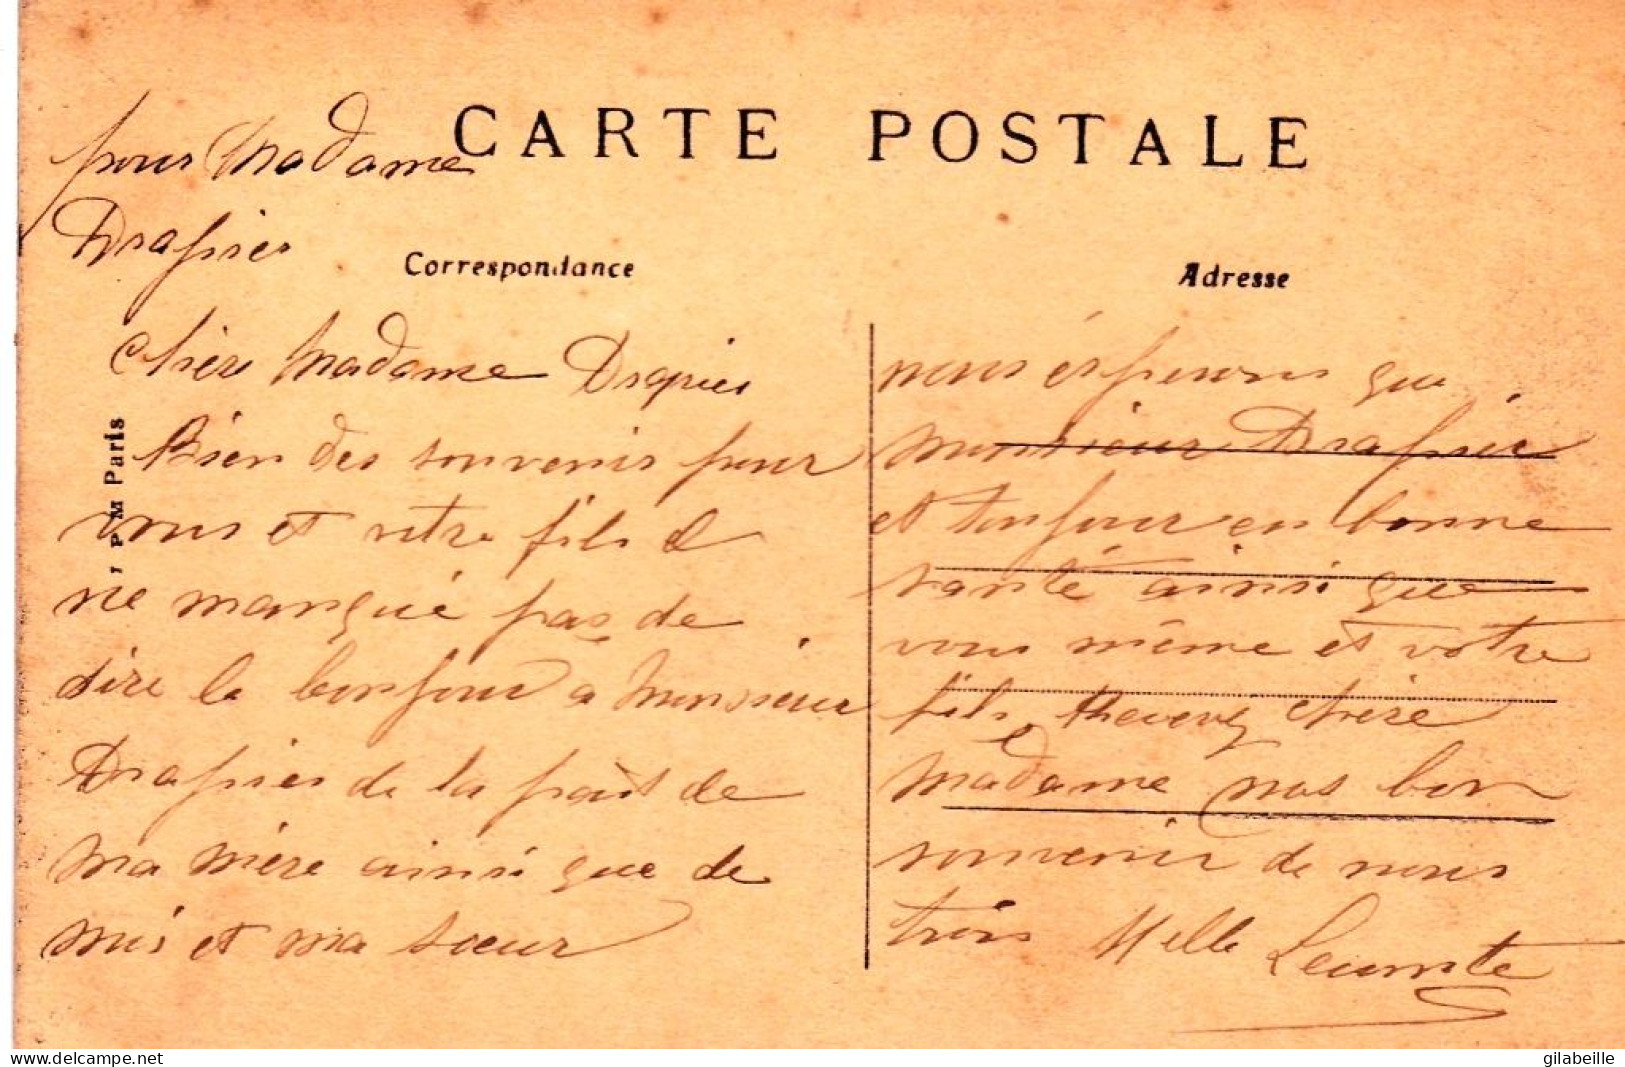 CARTE POSTALE
pour Madame
Drapier
Correspondance
Adresse
Chère Madame Drapier
Bien des souvenir pour
vous et votre fils et
ne manqué pas de
dire le bonjour a Monsieur
Drapier de la part de
ma mère ainsi que de
moi et ma sœur
nous ésperons que
Monsieur Drapier
et toujour en bonne
santé ainsi que
vous même et votre
fils, Recevez chère
Madame nos bon
souvenir de nous
trois Melle Lecomte
PM Paris
delcampe.net
gilabeille